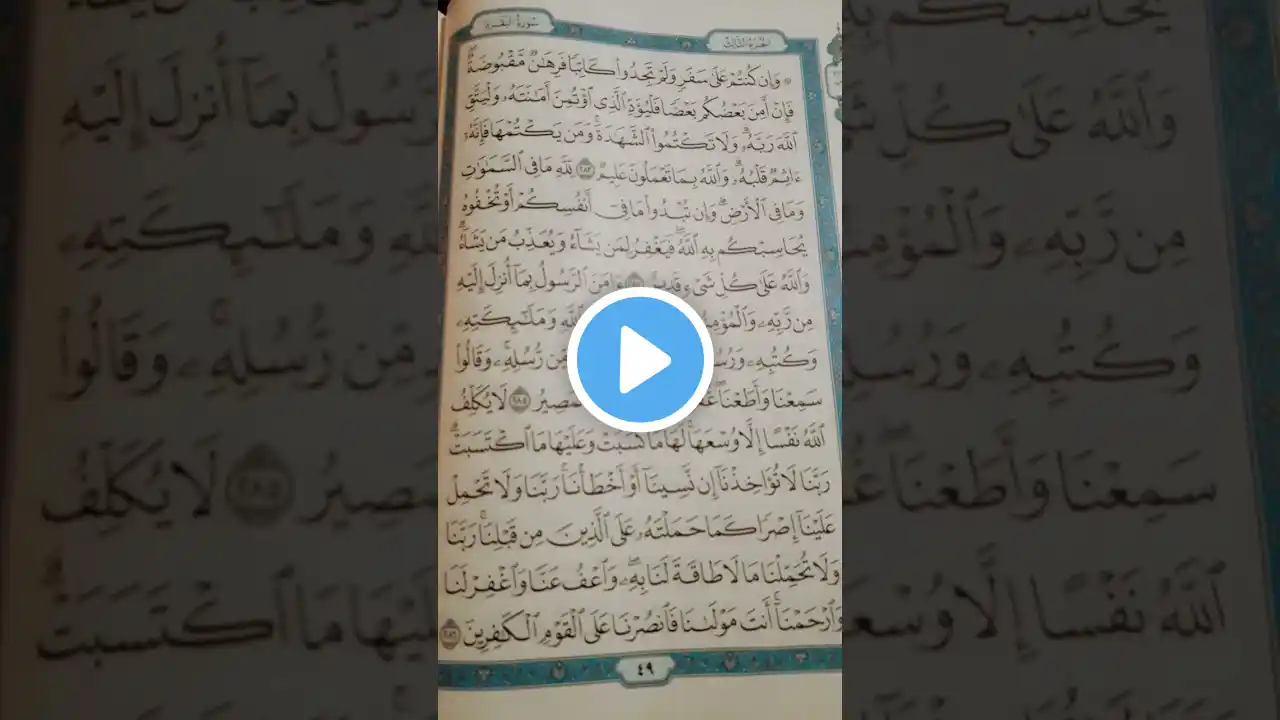 الجزء الثالث
سورة البقرة
۞ وَإِن كُنتُمْ عَلَىٰ سَفَرٍ وَلَمْ تَجِدُوا۟ كَاتِبًا فَرِهَٰنٌ مَّقْبُوضَةٌ ۖ
فَإِنْ أَمِنَ بَعْضُكُم بَعْضًا فَلْيُؤَدِّ ٱلَّذِى ٱؤْتُمِنَ أَمَٰنَتَهُۥ وَلْيَتَّقِ
ٱللَّهَ رَبَّهُۥ ۗ وَلَا تَكْتُمُوا۟ ٱلشَّهَٰدَةَ ۚ وَمَن يَكْتُمْهَا فَإِنَّهُۥٓ
ءَاثِمٌ قَلْبُهُۥ ۗ وَٱللَّهُ بِمَا تَعْمَلُونَ عَلِيمٌ ٢٨٣ لِّلَّهِ مَا فِى ٱلسَّمَٰوَٰتِ
وَمَا فِى ٱلْأَرْضِ ۗ وَإِن تُبْدُوا۟ مَا فِىٓ أَنفُسِكُمْ أَوْ تُخْفُوهُ
يُحَاسِبْكُم بِهِ ٱللَّهُ ۖ فَيَغْفِرُ لِمَن يَشَآءُ وَيُعَذِّبُ مَن يَشَآءُ ۗ
وَٱللَّهُ عَلَىٰ كُلِّ شَىْءٍ قَدِيرٌ ءَامَنَ ٱلرَّسُولُ بِمَآ أُنزِلَ إِلَيْهِ
مِن رَّبِّهِۦ وَمَلَٰٓئِكَتِهِۦ
وَكُتُبِهِۦ مِّن رُّسُلِهِۦ ۚ وَقَالُوا۟
سَمِعْنَا وَأَطَعْنَا ۖ ٢٨٥ لَا يُكَلِّفُ
ٱللَّهُ نَفْسًا إِلَّا وُسْعَهَا ۚ لَهَا مَا كَسَبَتْ وَعَلَيْهَا مَا ٱكْتَسَبَتْ ۗ
رَبَّنَا لَا تُؤَاخِذْنَآ إِن نَّسِينَآ أَوْ أَخْطَأْنَا ۚ رَبَّنَا وَلَا تَحْمِلْ
عَلَيْنَآ إِصْرًا كَمَا حَمَلْتَهُۥ عَلَى ٱلَّذِينَ مِن قَبْلِنَا ۚ رَبَّنَا
وَلَا تُحَمِّلْنَا مَا لَا طَاقَةَ لَنَا بِهِۦ ۖ وَٱعْفُ عَنَّا وَٱغْفِرْ لَنَا
وَٱرْحَمْنَآ ۚ أَنتَ مَوْلَىٰنَا فَٱنصُرْنَا عَلَى ٱلْقَوْمِ ٱلْكَٰفِرِينَ ٢٨٦
٤٩